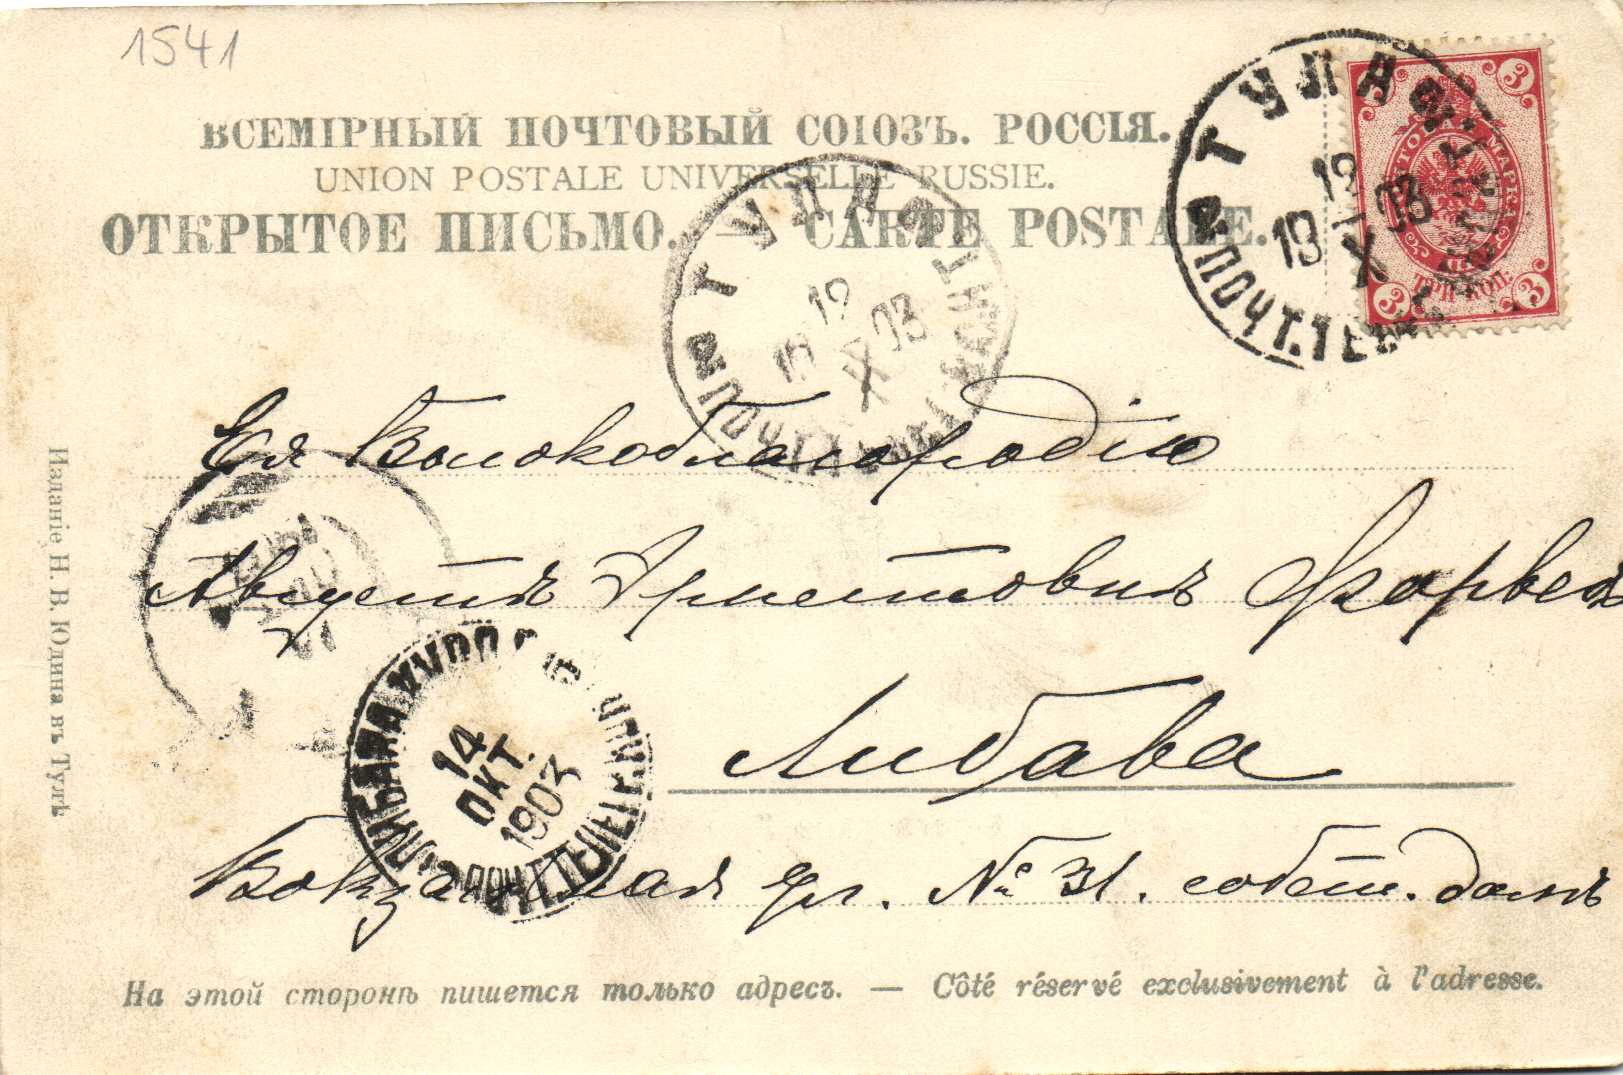 1541
ВСЕМІРНЫЙ ПОЧТОВЫЙ СОЮЗЪ. РОССІЯ.
UNION POSTALE UNIVERSELLE RUSSIE.
ОТКРЫТОЕ ПИСЬМО. — CARTE POSTALE.
ТУЛА
12
19 X 03
ПОЧТ. ТЕЛ
ПОЧТОВАЯ МАРКА
ТРИ КОП.
3
3
3
ТУЛА
12
19 X 03
Ея Высокоблагородію
Августѣ Эрнестовнѣ
Либава
Вокзальная ул. № 31. собств. домъ
ЛИБАВА КУРЛ.
14
ОКТ.
1903
Изданіе Н. В. Юдина въ Тулѣ
На этой сторонѣ пишется только адресъ. — Côté réservé exclusivement à l'adresse.